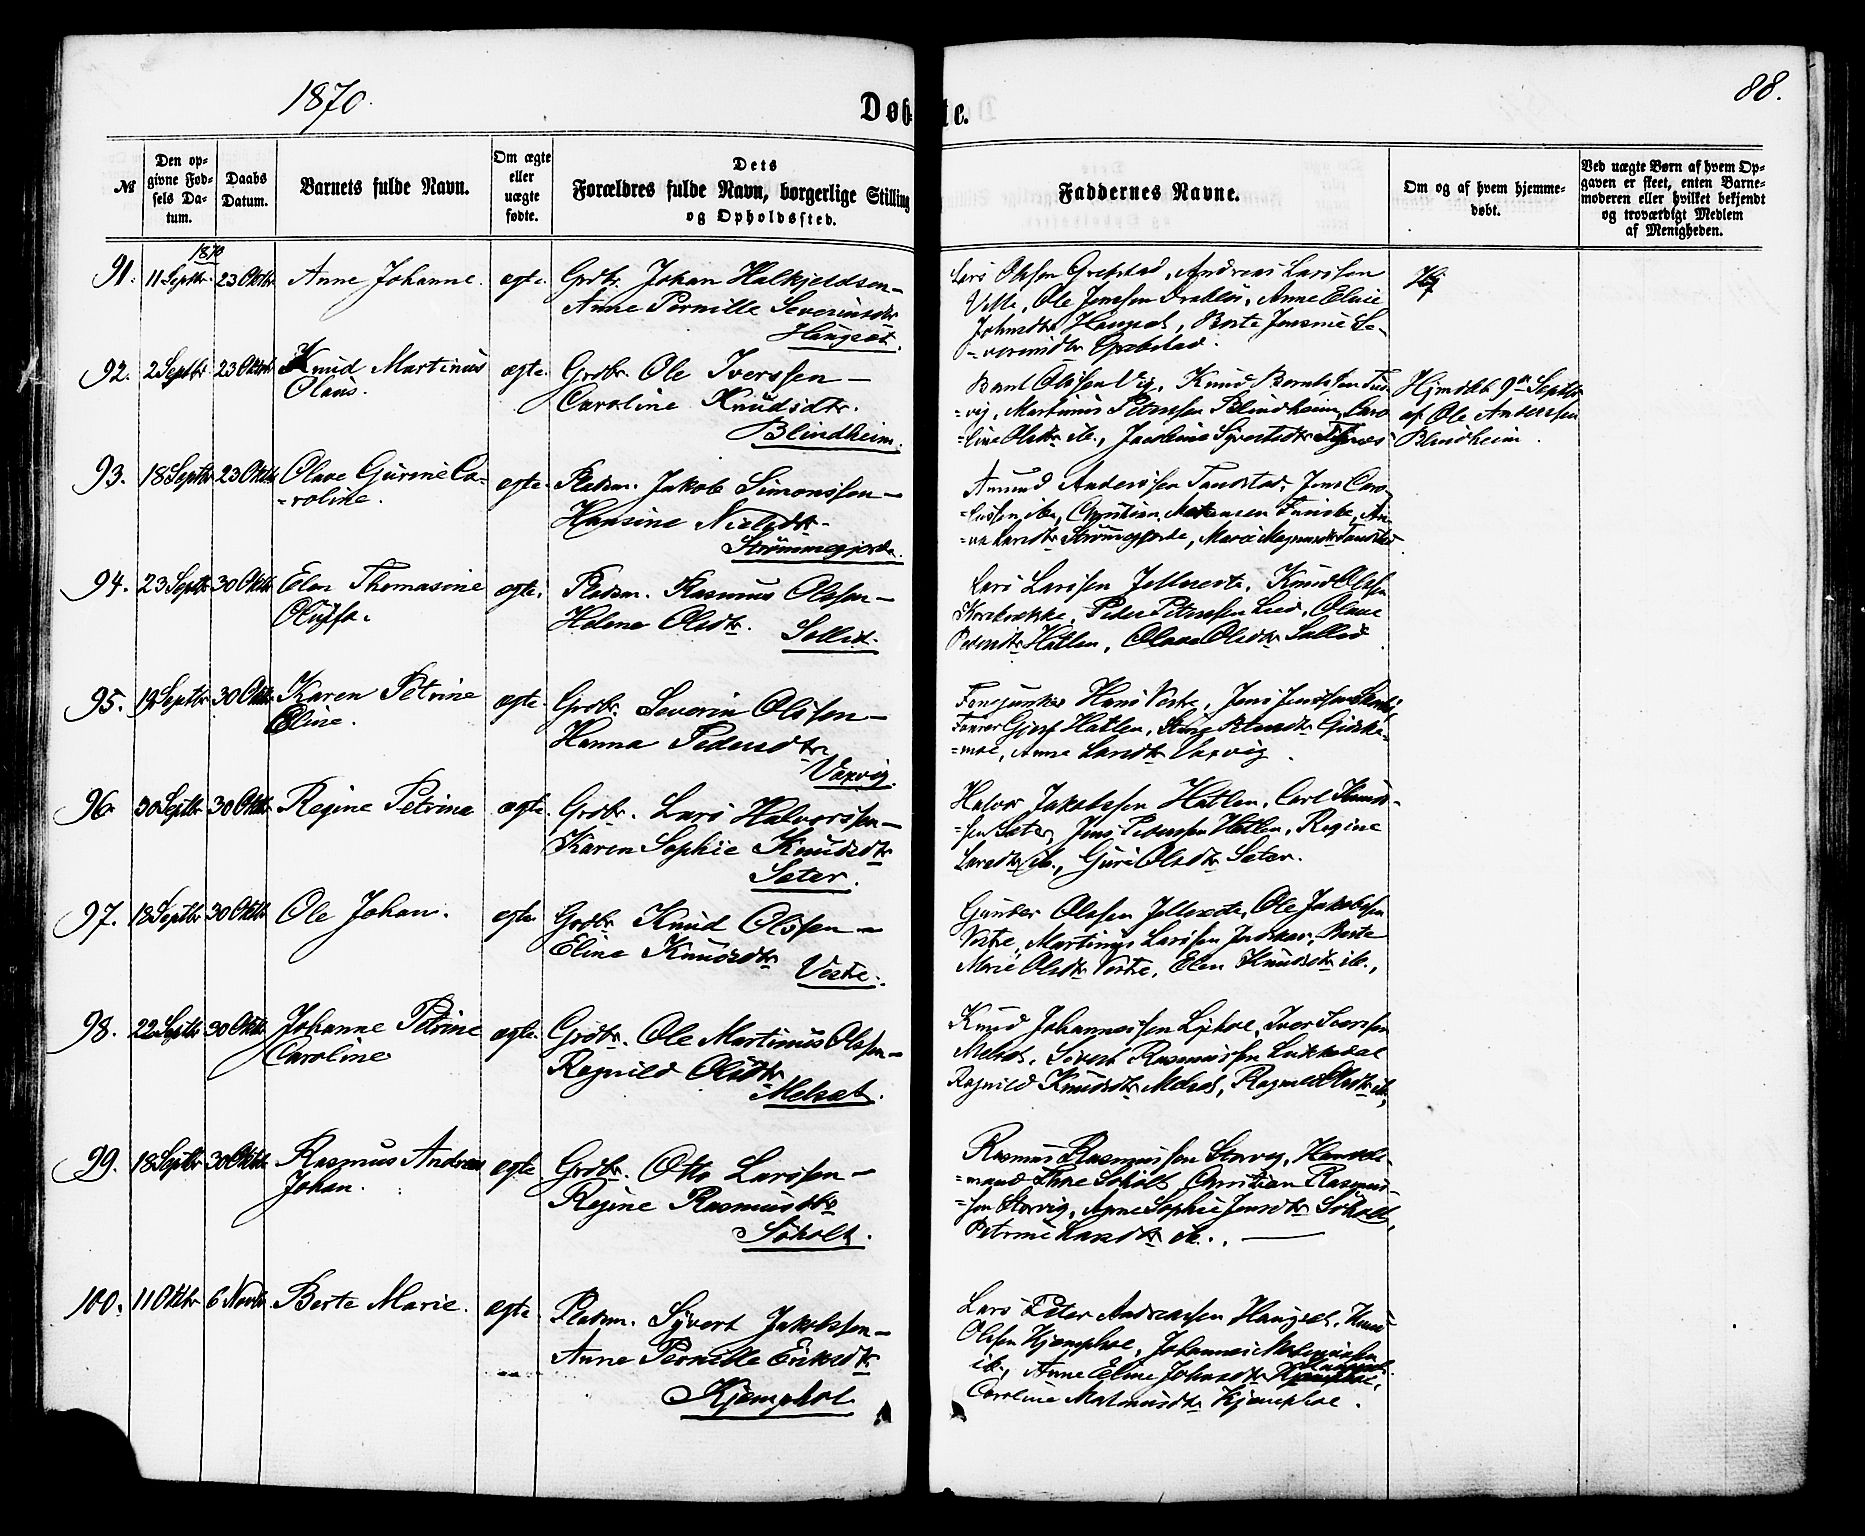 1870.
Døbte.
88.
№
Den opgivne Fødsels Datum.
Daabs Datum.
Barnets fulde Navn.
Om ægte eller uægte fødte.
Dets Forældres fulde Navn, borgerlige Stilling og Opholdssted.
Faddernes Navne.
Om og af hvem hjemmedøbt.
Ved uægte Børn af hvem Opgaven er skeet, enten Barnemoderen eller hvilket bekjendt og troværdigt Medlem af Menigheden.
1870
91. 11 Septbr 23 Oktbr Anne Johanne. ægte. Grdbr. Johan Halkjeldsen –
Anne Pernille Severinsdtr
Haugset.
Lars Olssen Grebstad, Andreas Larssen
Velle, Ole Jenssen Drabløs, Anne Eline
Johnsdtr Haugset, Berte Jensine Se-
=verinsdtr Grebstad.
92. 2 Septbr 23 Oktbr Knud Martinus ægte. Grdbr. Ole Iverssen –
Olaus. Caroline Knudsdtr.
Blindheim.
Bernt Olssen Vig, Knud Berntssen Tus-
=vig, Martinus Peterssen Blindheim, Caro
=line Olsdtr ib., Jacobine Syvertsdtr
Hjmdøbt 9de Septbr
af Ole Anderssen
Blindheim.
93. 18 Septbr 23 Oktbr Olave Gurine Ca- ægte. Pladsm. Jakob Simonssen –
=roline. Hansine Nielsdtr
Strømmegjerde.
Amund Anderssen Tandstad, Jens Caro
=liussen ib., Christian
=ne Larsdtr Strømmegjerde, Marie Magnusdtr Tandstad.
94. 23 Septbr 30 Oktbr Elen Thomasine ægte. Pladsm. Rasmus Olssen –
Oluffa. Helene Olsdtr. Sollid.
Lars Larssen Jelleseter, Knud Olssen
Korsbrekke, Peder Peterssen Lied, Olave
Petersdtr Hatlen, Olave Olsdtr Sollid
95. 19 Septbr 30 Oktbr Karen Petrine ægte. Grdbr. Severin Olssen –
Eline. Hanna Pedersdtr
Vaxvig.
Hans Vestre, Jens Jenssen
Hatlen, Giske-
=moe, Anne Larsdtr Vaxvig.
96. 30 Septbr 30 Oktbr Regine Petrine ægte. Grdbr. Lars Halvorssen –
Karen Sophie Knudsdtr
Sæter.
Halvor Jakobssen Hatlen, Carl Knud-
=sen Sæter, Jens Pederssen Hatlen, Regine
Larsdtr ib., Guri Olsdtr Sæter.
97. 18 Septbr 30 Oktbr Ole Johan. ægte Grdbr. Knud Olssen –
Eline Knudsdtr
Vestre.
Gunder Olssen Jelleseter, Ole Jakobssen
Vestre, Martinus Larssen Indskar, Berte
Marie Olsdtr Vestre, Elen Knudsdtr ib.,
98. 22 Septbr 30 Oktbr Johanne Petrine ægte. Grdbr. Ole Martinus Olssen –
Caroline Ragnild Olsdtr
Melset.
Knud Johannessen Ljshoe, Iver Iverssen
Melset, Sivert Rasmussen Lukkedal
Ragnild Knudsdtr Melset, Rasmine Olsdtr ib.,
99. 18 Septbr 30 Oktbr Rasmus Andreas ægte Grdbr. Otto Larssen –
Johan. Regine Rasmusdtr
Søholt.
Rasmus Rasmussen Storvig, Handels-
=mand Thore Søholt, Christian Rasmus-
=sen Storvig, Anne Sophie Jensdtr Søholt,
Petrine Larsdtr ib.. –
100. 11 Oktbr 6 Novbr. Berte Marie. ægte. Pladsm. Syvert Jakobssen –
Anne Pernille Eriksdtr
Kjemphol
Lars Peter Andreassen Haugset, Knud
Olssen Kjemphoe, Johannes
ib., Anne Eline Johnsdtr Haugset,
Caroline Matiusdtr Kjemphoe.